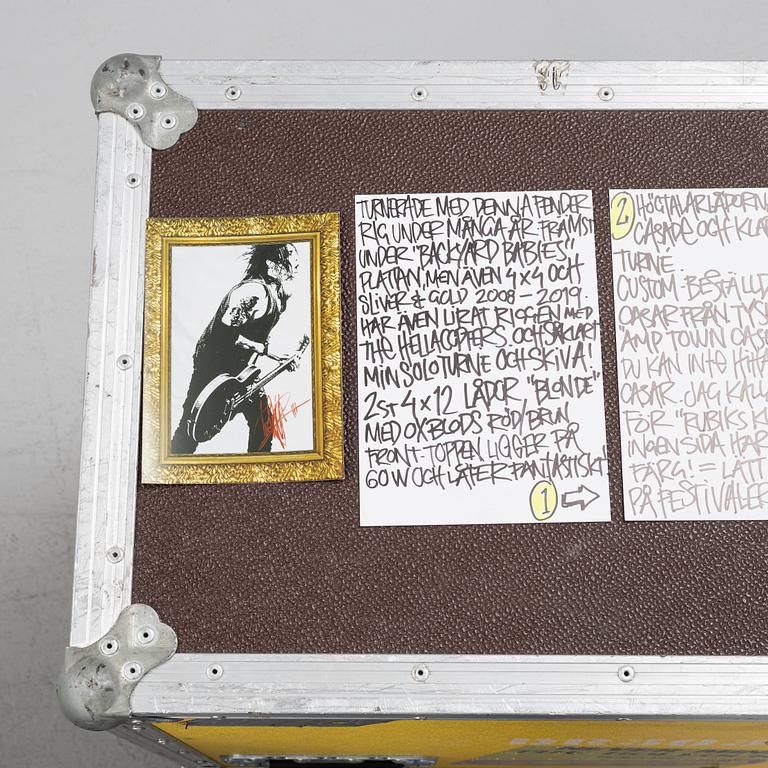 TURNERADE MED DENNA FENDER
RIG UNDER MÅNGA ÅR FRAMST
UNDER "BACKYARD BABIES"
PLATTAN, MEN ÄVEN 4x4 OCH
SLIVER & GOLD 2008 – 2019.
HAR ÄVEN LIRAT RIGGEN MED
THE HELLACOPTERS OCH SÅKLART
MIN SOLOTURNE OCH SKIVA!
2ST 4x12 LÅDOR "BLONDE"
MED OXBLODS RÖD/BRUN
FRONT. TOPPEN LIGGER PÅ
60W OCH LÅTER FANTASTISKT
1
2 HÖGTALARLÅDORNA
OCH
TURNÉ.
CUSTOM BESTÄLLD
CASAR FRÅN TYS
"AMP TOWN CAS
DU KAN INTE HITTA
CASAR. JAG KALL
FÖR "RUBIKS K
INGEN SIDA HAR
FÄRG! = LÄTT
PÅ FESTIVALER